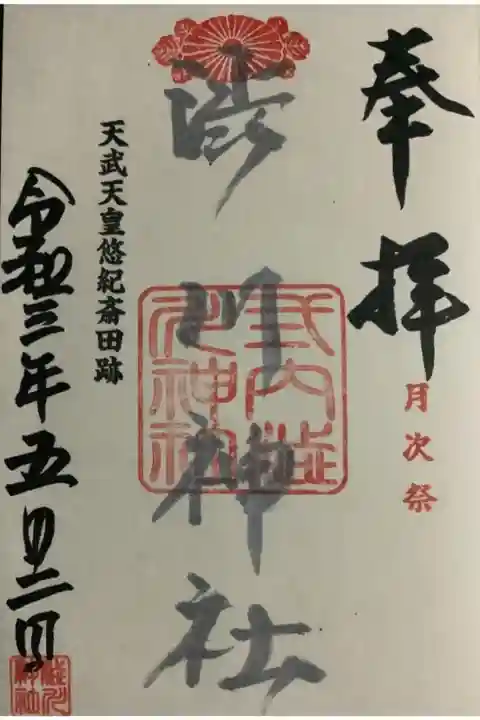 奉拝
月次祭
渋川神社
式内澁
川神社
天武天皇悠紀斎田跡
令和三年五月二日